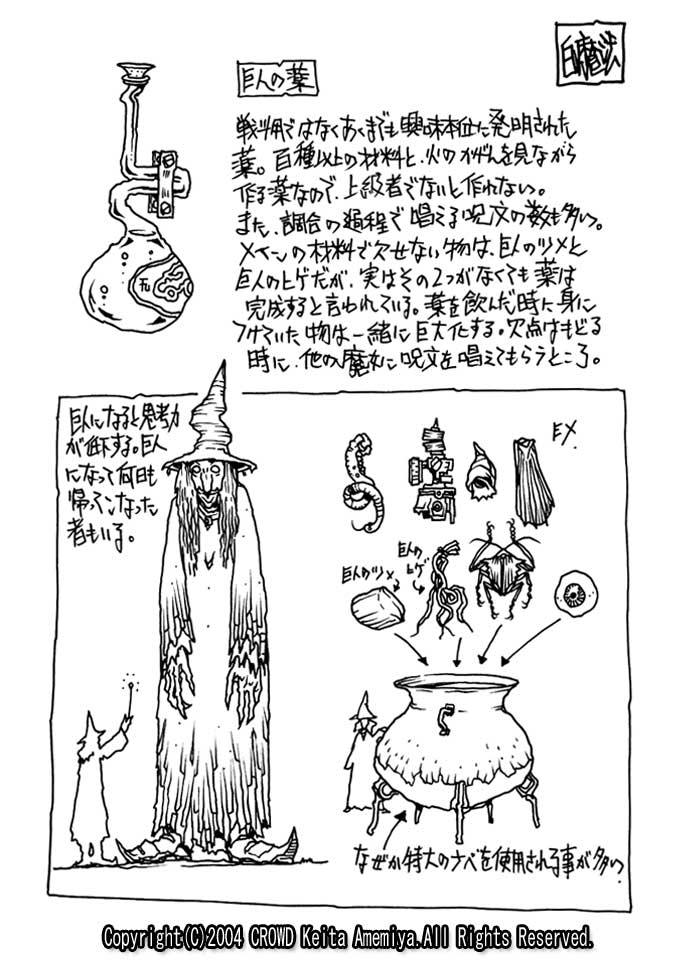 白魔法
巨人の薬
戦闘用ではなくあくまでも興味本位に発明された
薬。百種以上の材料と、火のかげんを見ながら
作る薬なので、上級者でないと作れない。
また、調合の過程で唱える呪文の数も多い。
メインの材料で欠せない物は、巨人のツメと
巨人のヒゲだが、実はその2つがなくても薬は
完成すると言われている。薬を飲んだ時に身に
つけていた物は一緒に巨大化する。欠点はもどる
時に、他の魔女に呪文を唱えてもらうところ。
巨人になると思考力
が低下する。巨人
になって何日も
帰ってこなかった
者もいる。
EX.
巨人のツメ
巨人の
ヒゲ
なぜか特大のナベを使用される事が多い。
Copyright(C)2004 CROWD Keita Amemiya.All Rights Reserved.